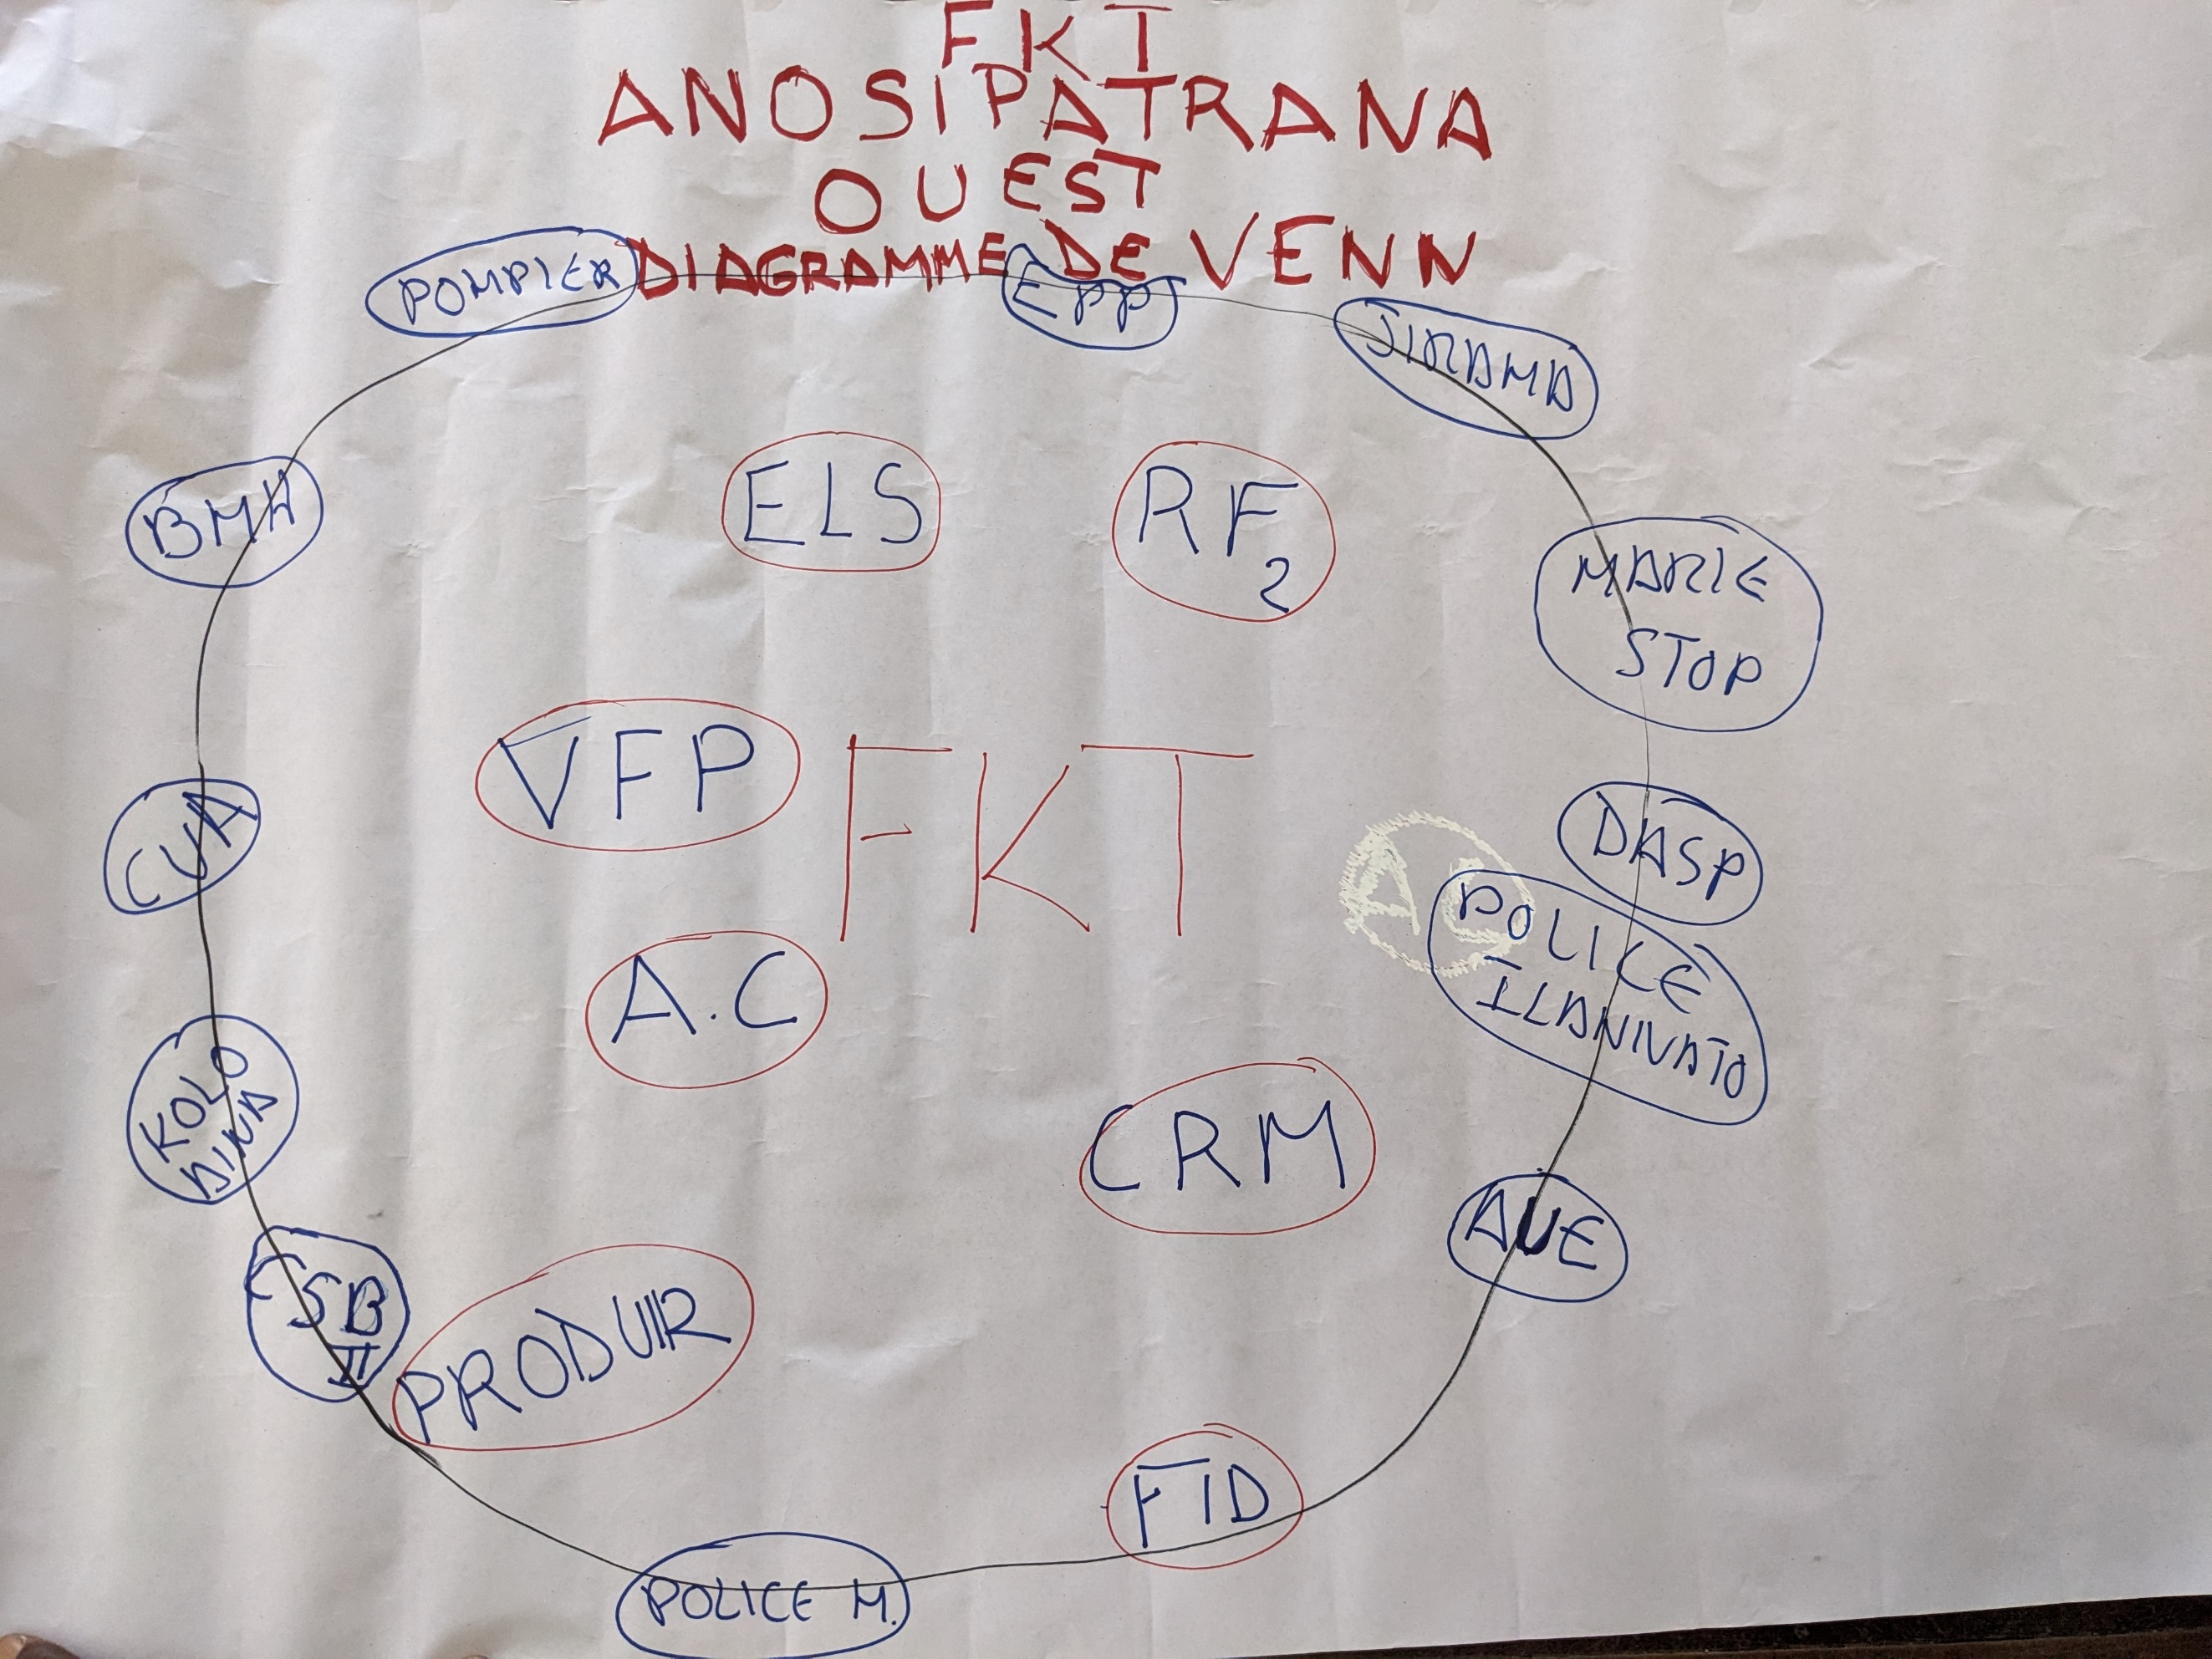 FKT
ANOSIPATRANA
OUEST
DIAGRAMME DE VENN
POMPIER
EPP
JIRAMA
BMH
ELS
RF2
MARIE
STOP
VFP
FKT
CUA
DASP
AC
POLICE
ILANIVATO
A.C
KOLO
AINA
CRM
AUE
CSB
II
PRODUIR
FID
POLICE M.